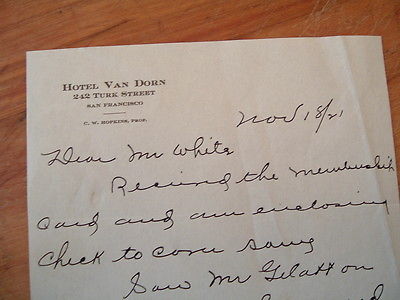 HOTEL VAN DORN
242 TURK STREET
SAN FRANCISCO
C. W. HOPKINS, PROP.
Nov 18/21
Dear Mr White
Recived the Membership
Card and am enclosing
Check to cover same
Saw Mr Gelatt on